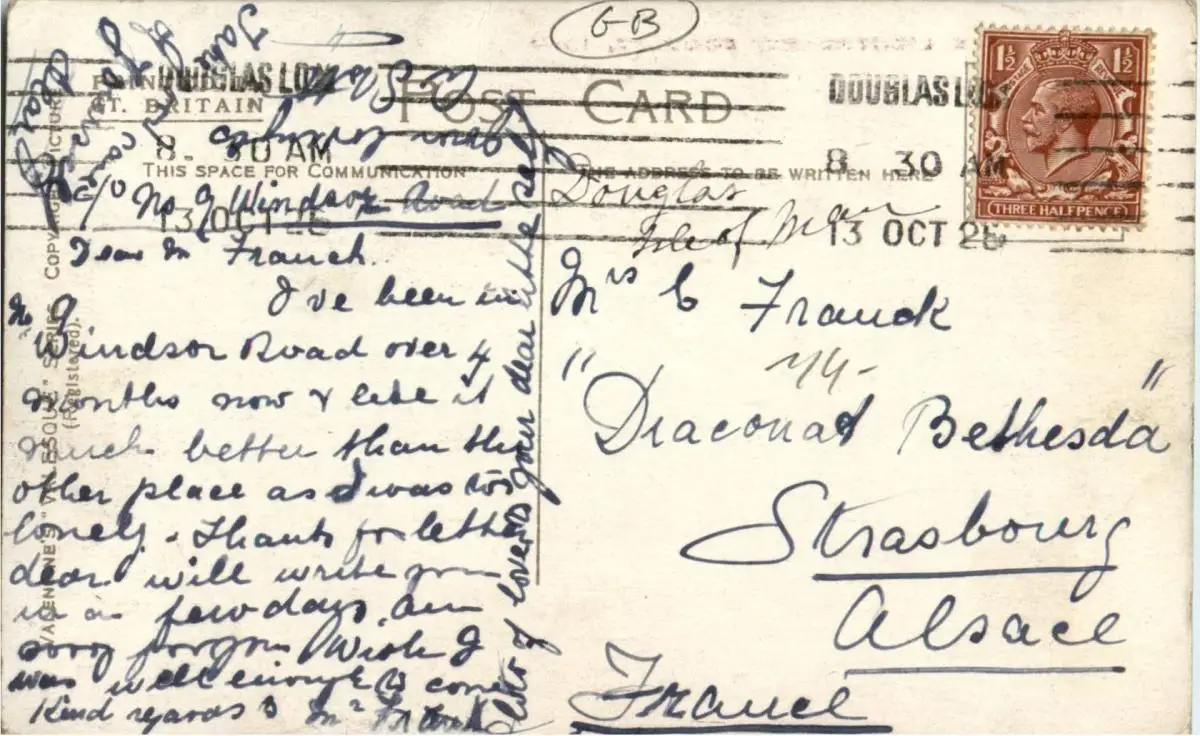 G-B
PRINTED IN
GT. BRITAIN
POST CARD
DOUGLAS I.O.M
8. 30 AM
13 OCT 25
DOUGLAS I.O.M
8. 30 AM
13 OCT 25
1½ 1½
THREE HALFPENCE
THIS SPACE FOR COMMUNICATION
THE ADDRESS TO BE WRITTEN HERE
VALENTINE'S "VALESQUE" SERIES
(Registered).
Take
care
of yourself
c/o No 9 Windsor Road
Douglas
Isle of Man
Dear Mrs Franck.
I've been in
No 9
Windsor Road over 4
months now & like it
much better than the
other place as I was too
lonely. Thanks for letter
dear will write you
in a few days. Am
sorry for you Wish I
was well enough to come
Kind regards to Mr Franck
lots of love to your dear little self
Mrs C Franck
"Diaconat Bethesda"
Strasbourg
Alsace
France